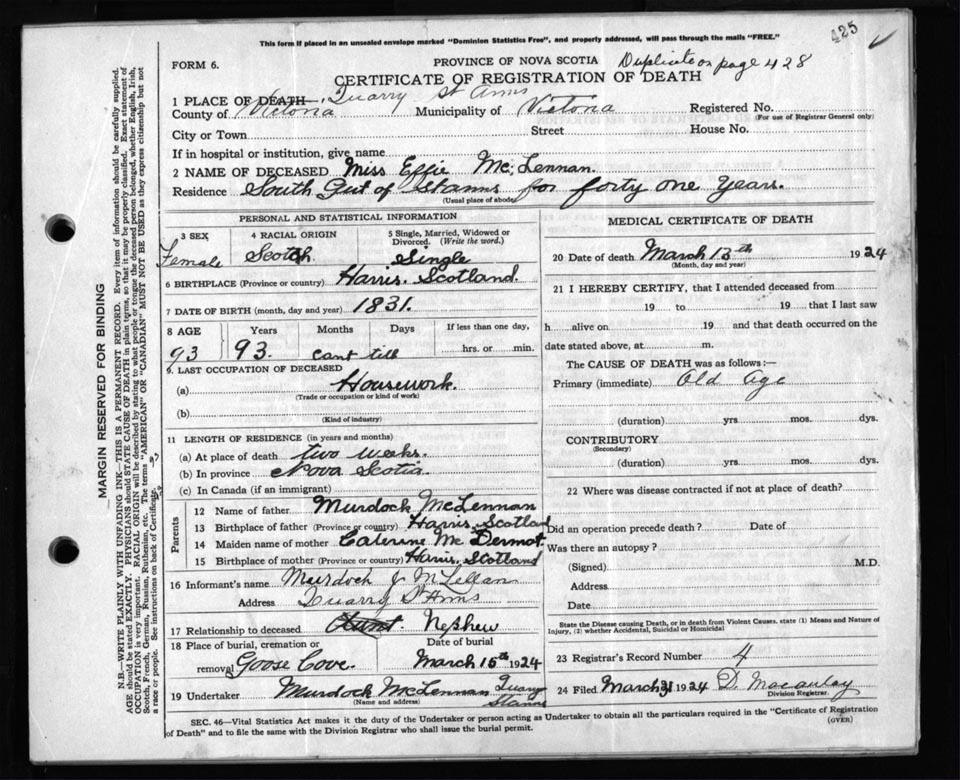 425
This form if placed in an unsealed envelope marked "Dominion Statistics Free", and properly addressed, will pass through the mails "FREE."
FORM 6.
PROVINCE OF NOVA SCOTIA
Duplicate on page 428
CERTIFICATE OF REGISTRATION OF DEATH
1 PLACE OF DEATH Quarry St Anns
County of Victoria Municipality of Victoria Registered No.
(For use of Registrar General only)
City or Town Street House No.
If in hospital or institution, give name
2 NAME OF DECEASED Miss Effie Mc Lennan.
Residence South Gut of Stanns for forty one Years.
(Usual place of abode)
PERSONAL AND STATISTICAL INFORMATION
3 SEX 4 RACIAL ORIGIN 5 Single, Married, Widowed or Divorced. (Write the word.)
Female Scotch Single
6 BIRTHPLACE (Province or country) Harris. Scotland.
7 DATE OF BIRTH (month, day and year) 1831.
8 AGE Years Months Days If less than one day,
93 93. cant till hrs. or min.
9. LAST OCCUPATION OF DECEASED
(a) Housework.
(Trade or occupation or kind of work)
(b)
(Kind of industry)
11 LENGTH OF RESIDENCE (in years and months)
(a) At place of death two weeks.
(b) In province Nova Scotia
(c) In Canada (if an immigrant)
Parents
12 Name of father Murdock McLennan
13 Birthplace of father (Province or country) Harris. Scotland
14 Maiden name of mother Caterine Mc Dermot.
15 Birthplace of mother (Province or country) Harris. Scotland
16 Informant's name Murdoch J McLellan
Address Quarry St Anns
17 Relationship to deceased Aunt. Nephew
18 Place of burial, cremation or removal Goose Cove. Date of burial March 15th 1924
19 Undertaker Murdock McLennan Quarry Stanns
(Name and address)
MEDICAL CERTIFICATE OF DEATH
20 Date of death March 13th 1924
(Month, day and year)
21 I HEREBY CERTIFY, that I attended deceased from
19 to 19 that I last saw
h alive on 19 and that death occurred on the
date stated above, at m.
The CAUSE OF DEATH was as follows:—
Primary (immediate) Old Age
(duration) yrs. mos. dys.
CONTRIBUTORY
(Secondary)
(duration) yrs. mos. dys.
22 Where was disease contracted if not at place of death?
Did an operation precede death? Date of
Was there an autopsy?
(Signed) M.D.
Address
Date
State the Disease causing Death, or in death from Violent Causes. state (1) Means and Nature of Injury, (2) whether Accidental, Suicidal or Homicidal
23 Registrar's Record Number 4
24 Filed March 31 1924 D. Macaulay
Division Registrar
SEC. 46—Vital Statistics Act makes it the duty of the Undertaker or person acting as Undertaker to obtain all the particulars required in the "Certificate of Registration
of Death" and to file the same with the Division Registrar who shall issue the burial permit.
(OVER)
MARGIN RESERVED FOR BINDING
N.B.—WRITE PLAINLY WITH UNFADING INK—THIS IS A PERMANENT RECORD. Every item of information should be carefully supplied.
AGE should be stated EXACTLY. PHYSICIANS should STATE CAUSE OF DEATH in plain terms, so that it may be properly classified. Exact statement of
OCCUPATION is very important. RACIAL ORIGIN will be described by stating to what people or tongue the deceased person belonged, whether English, Irish,
Scotch, French, German, Russian, Ruthenian, etc. The terms "AMERICAN" or "CANADIAN" MUST NOT BE USED as they express citizenship but not
a race or people. See instructions on back of Certificate.